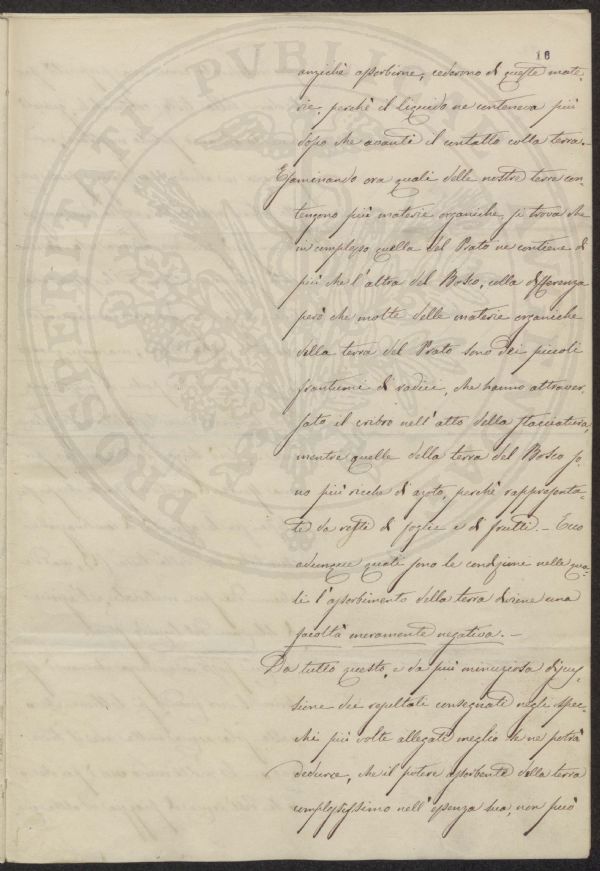 18
anzichè assorbirne, cederono di queste mate-
rie, perchè il liquido ne conteneva più
dopo che avanti il contatto colla terra.-
Esaminando ora quali delle nostre terre con-
tengono più materie organiche, si trova che
in complesso quella del Prato ne contiene di
più che l'altra del Bosco, colla differenza
però che molte delle materie organiche
della terra del Prato sono dei piccoli
frantumi di radici, che hanno attraver-
sato il cribro nell'atto della stacciatura,
mentre quelle della terra del Bosco so-
no più ricche di azoto, perchè rappresenta-
te da resti di foglie e di frutti. - Ecco
adunque quali sono le condizione nelle qua-
li l'assorbimento della terra diviene una
facoltà meramente negativa. -
Da tutto questo, e da più minuziosa discus-
sione dei resultati consegnati negli spec-
chi più volte allegati meglio se ne potrà
dedurre, che il potere assorbente della terra
complessissimo nell'essenza sua, non può
PROSPERITATI PVBLICAE